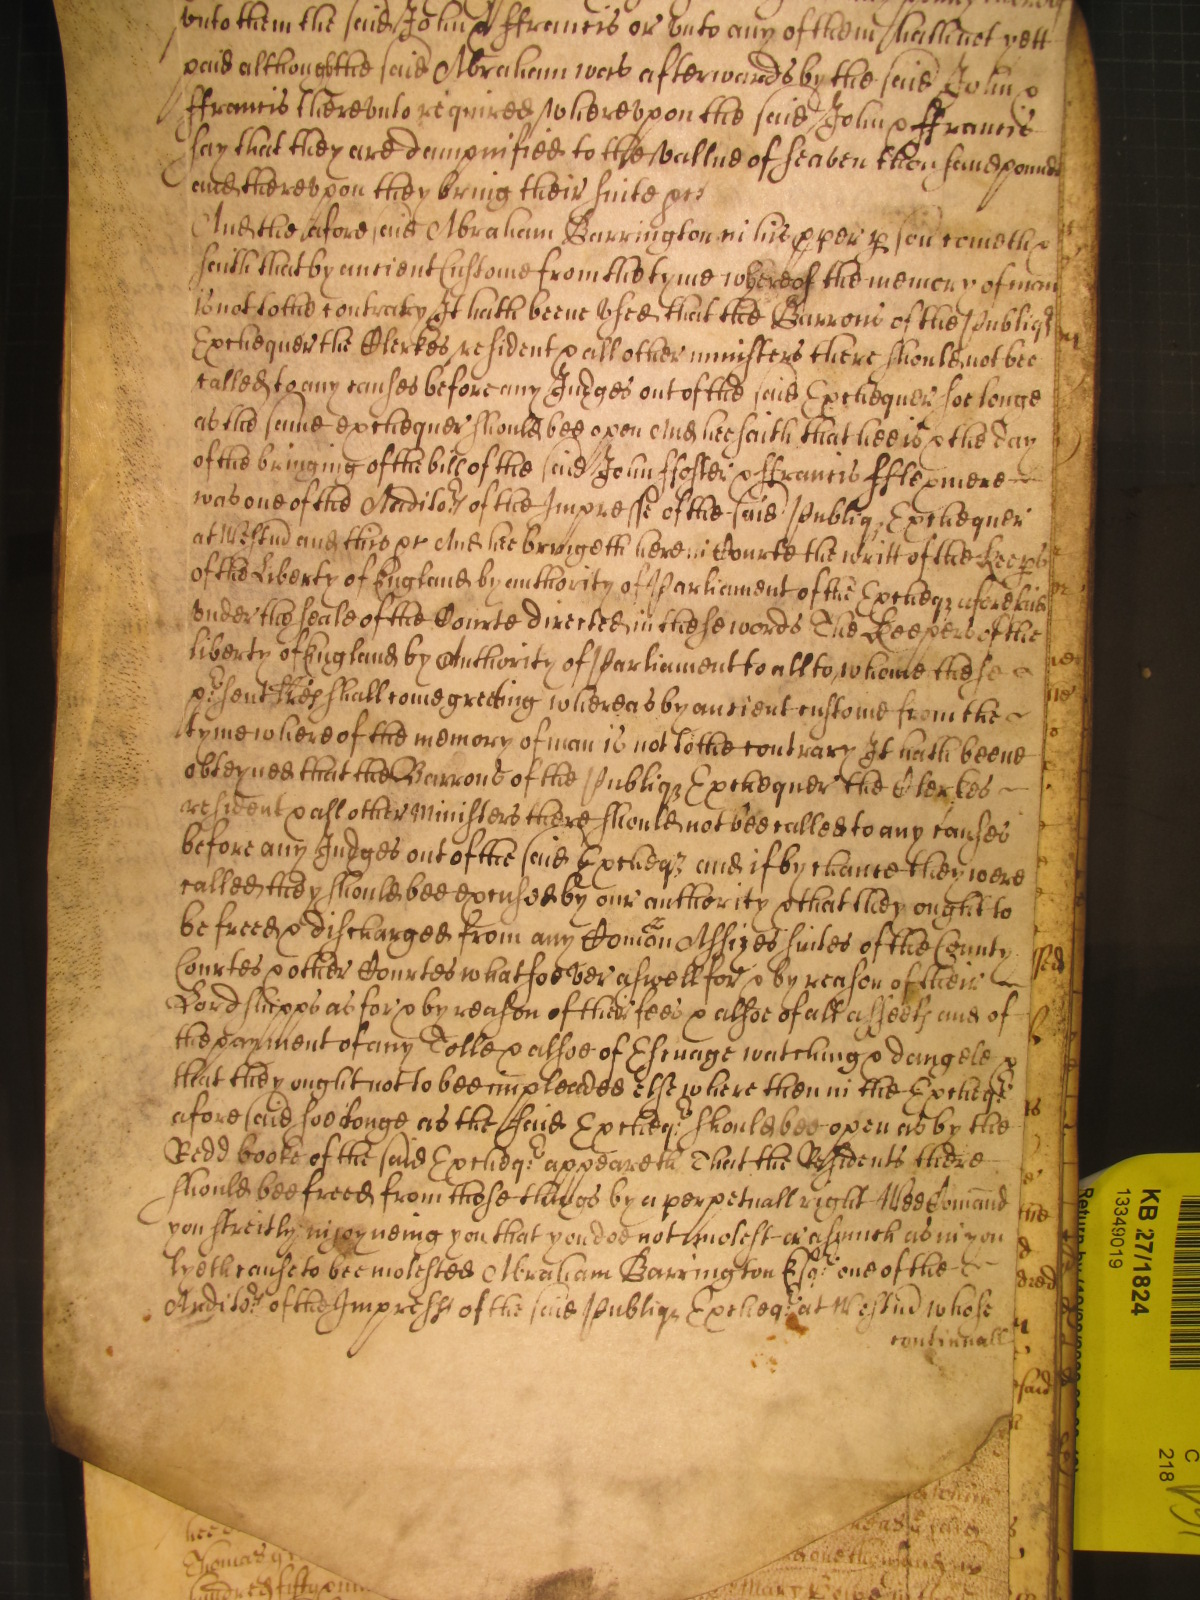 vnto them the said John & ffrancis or vnto any of them hath not yett
paid although the said Abraham was afterwards by the said John &
ffrancis therevnto required wherevpon the said John & ffrancis
say that they are dampnified to the vallue of seaven thousand pounds
and therevpon they bring their suite &c
And the aforesaid Abraham Barrington in his pper pson cometh &
saith that by ancient Custome from the tyme whereof the memory of man
is not to the contrary It hath beene vsed that the Barrons of the Publiq
Exchequer the Clerkes resident & all other ministers there should not bee
called to any causes before any Judges out of the said Exchequer soe longe
as the same exchequer should bee open And hee saith that hee is & the day
of the bringing of the bill of the said John ffoster & ffrancis
was one of the Auditors of the Impresse of the said Publiq Exchequer
at Westmr and this &c And hee bringeth here in Courte the writt of the Keeps
of the Liberty of England by authority of Parliament of the Excheqr aforesaid
vnder the seale of the Courte directed in these words The Keepers of the
liberty of England by Authority of Parliament to all to whome these
psent shall come greeting whereas by ancient custome from the
tyme whereof the memory of man is not to the contrary It hath beene
obteyned that the Barrons of the Publiq Exchequer the Clerkes
resident & all other Ministers there should not bee called to any causes
before any Judges out of the said Excheqr and if by chance they were
called they should bee excused by our authority & that they ought to
be freed & discharged from any Comon Assizes suites of the County
Courtes & other Courtes whatsoever aswell for & by reason of their
Lordshipps as for & by reason of their fees & alsoe of all and of
the payment of any Tolle & alsoe of Escuage watching & dangele &
that they ought not to bee impleaded else where then in the Excheqr
aforesaid soe longe as the said Excheqr should bee open as by the
Redd booke of the said Excheqr appeareth That the Residents there
should bee freed from those things by a perpetuall right Wee Comand
you streitly injoyneing you that you doe not molest or asmuch as in you
lyeth cause to bee molested Abraham Barrington Esqr one of the
Auditors of the Impresse of the said Publiq Excheqr at Westmr whose
continuall
said
Thomas
hundred fifty
KB 27/1824
13349019
C
218